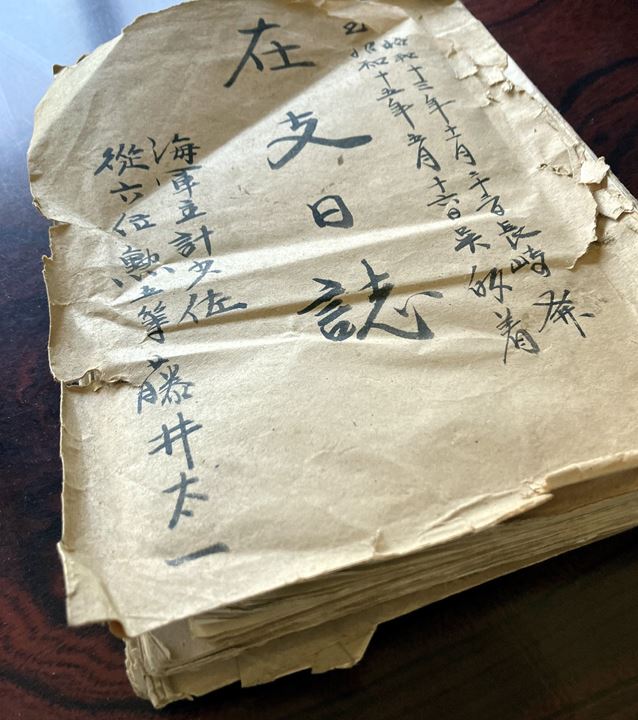 昭和十三年十二月二十二日長崎発
至昭和十五年五月十六日呉帰着
在支日誌
海軍主計少佐
従六位勲五等藤井太一